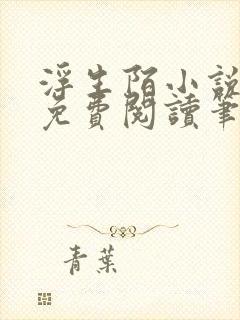 浮生陌小說
免費閱讀筆
青葉